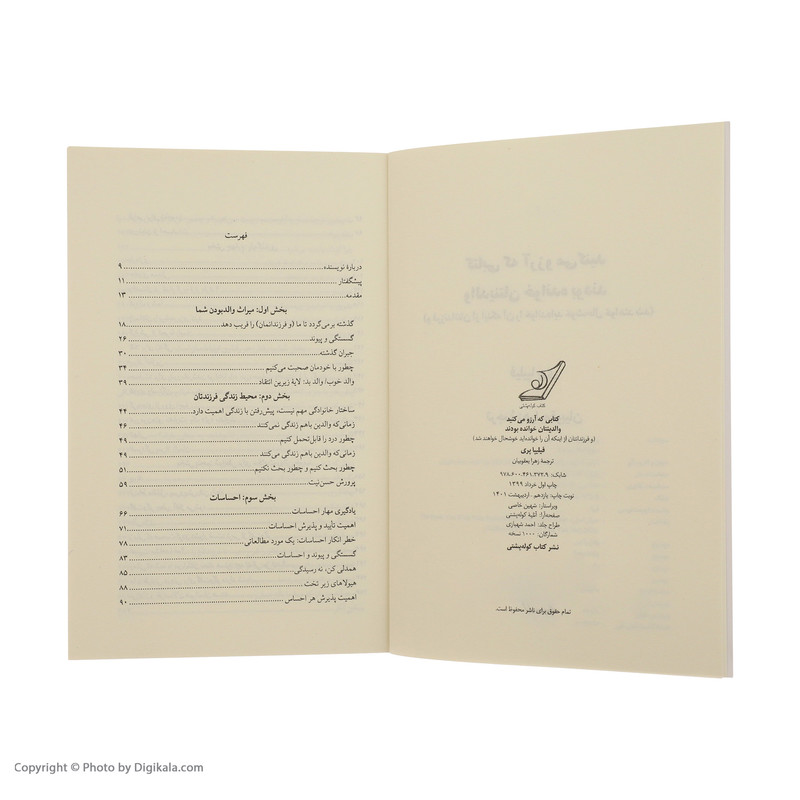 کتاب کوله‌پشتی
کتابی که آرزو می‌کنید
والدینتان خوانده بودند
(و فرزندانتان از اینکه آن را خوانده‌اید خوشحال خواهند شد)
فیلیپا پری
ترجمهٔ زهرا یعقوبیان
شابک: ۹۷۸.۶۰۰.۴۶۱.۳۷۳.۹
چاپ اول خرداد ۱۳۹۹
نوبت چاپ: یازدهم . اردیبهشت ۱۴۰۱
ویراستار: شهین خاصی
صفحه‌آرا: آتلیهٔ کوله‌پشتی
طراح جلد: احمد شهبازی
شمارگان: ۱۰۰۰ نسخه
نشر کتاب کوله‌پشتی
تمام حقوق برای ناشر محفوظ است.
فهرست
دربارهٔ نویسنده ۹
پیشگفتار ۱۱
مقدمه ۱۳
بخش اول: میراث والدبودن شما
گذشته برمی‌گردد تا ما (و فرزندانمان) را فریب دهد ۱۸
گسستگی و پیوند ۲۶
جبران گذشته ۳۰
چطور با خودمان صحبت می‌کنیم ۳۴
والد خوب/ والد بد: لایهٔ زیرین انتقاد ۳۹
بخش دوم: محیط زندگی فرزندتان
ساختار خانوادگی مهم نیست، پیش‌رفتن با زندگی اهمیت دارد ۴۴
زمانی‌که والدین باهم زندگی نمی‌کنند ۴۶
چطور درد را قابل‌تحمل کنیم ۴۹
زمانی‌که والدین باهم زندگی می‌کنند ۴۹
چطور بحث کنیم و چطور بحث نکنیم ۵۱
پرورش حسن‌نیت ۵۹
بخش سوم: احساسات
یادگیری مهار احساسات ۶۶
اهمیت تأیید و پذیرش احساسات ۷۱
خطر انکار احساسات: یک مورد مطالعاتی ۷۸
گسستگی و پیوند و احساسات ۸۳
همدلی کن، نه رسیدگی ۸۵
هیولاهای زیر تخت ۸۸
اهمیت پذیرش هر احساس ۹۰
Copyright © Photo by Digikala.com